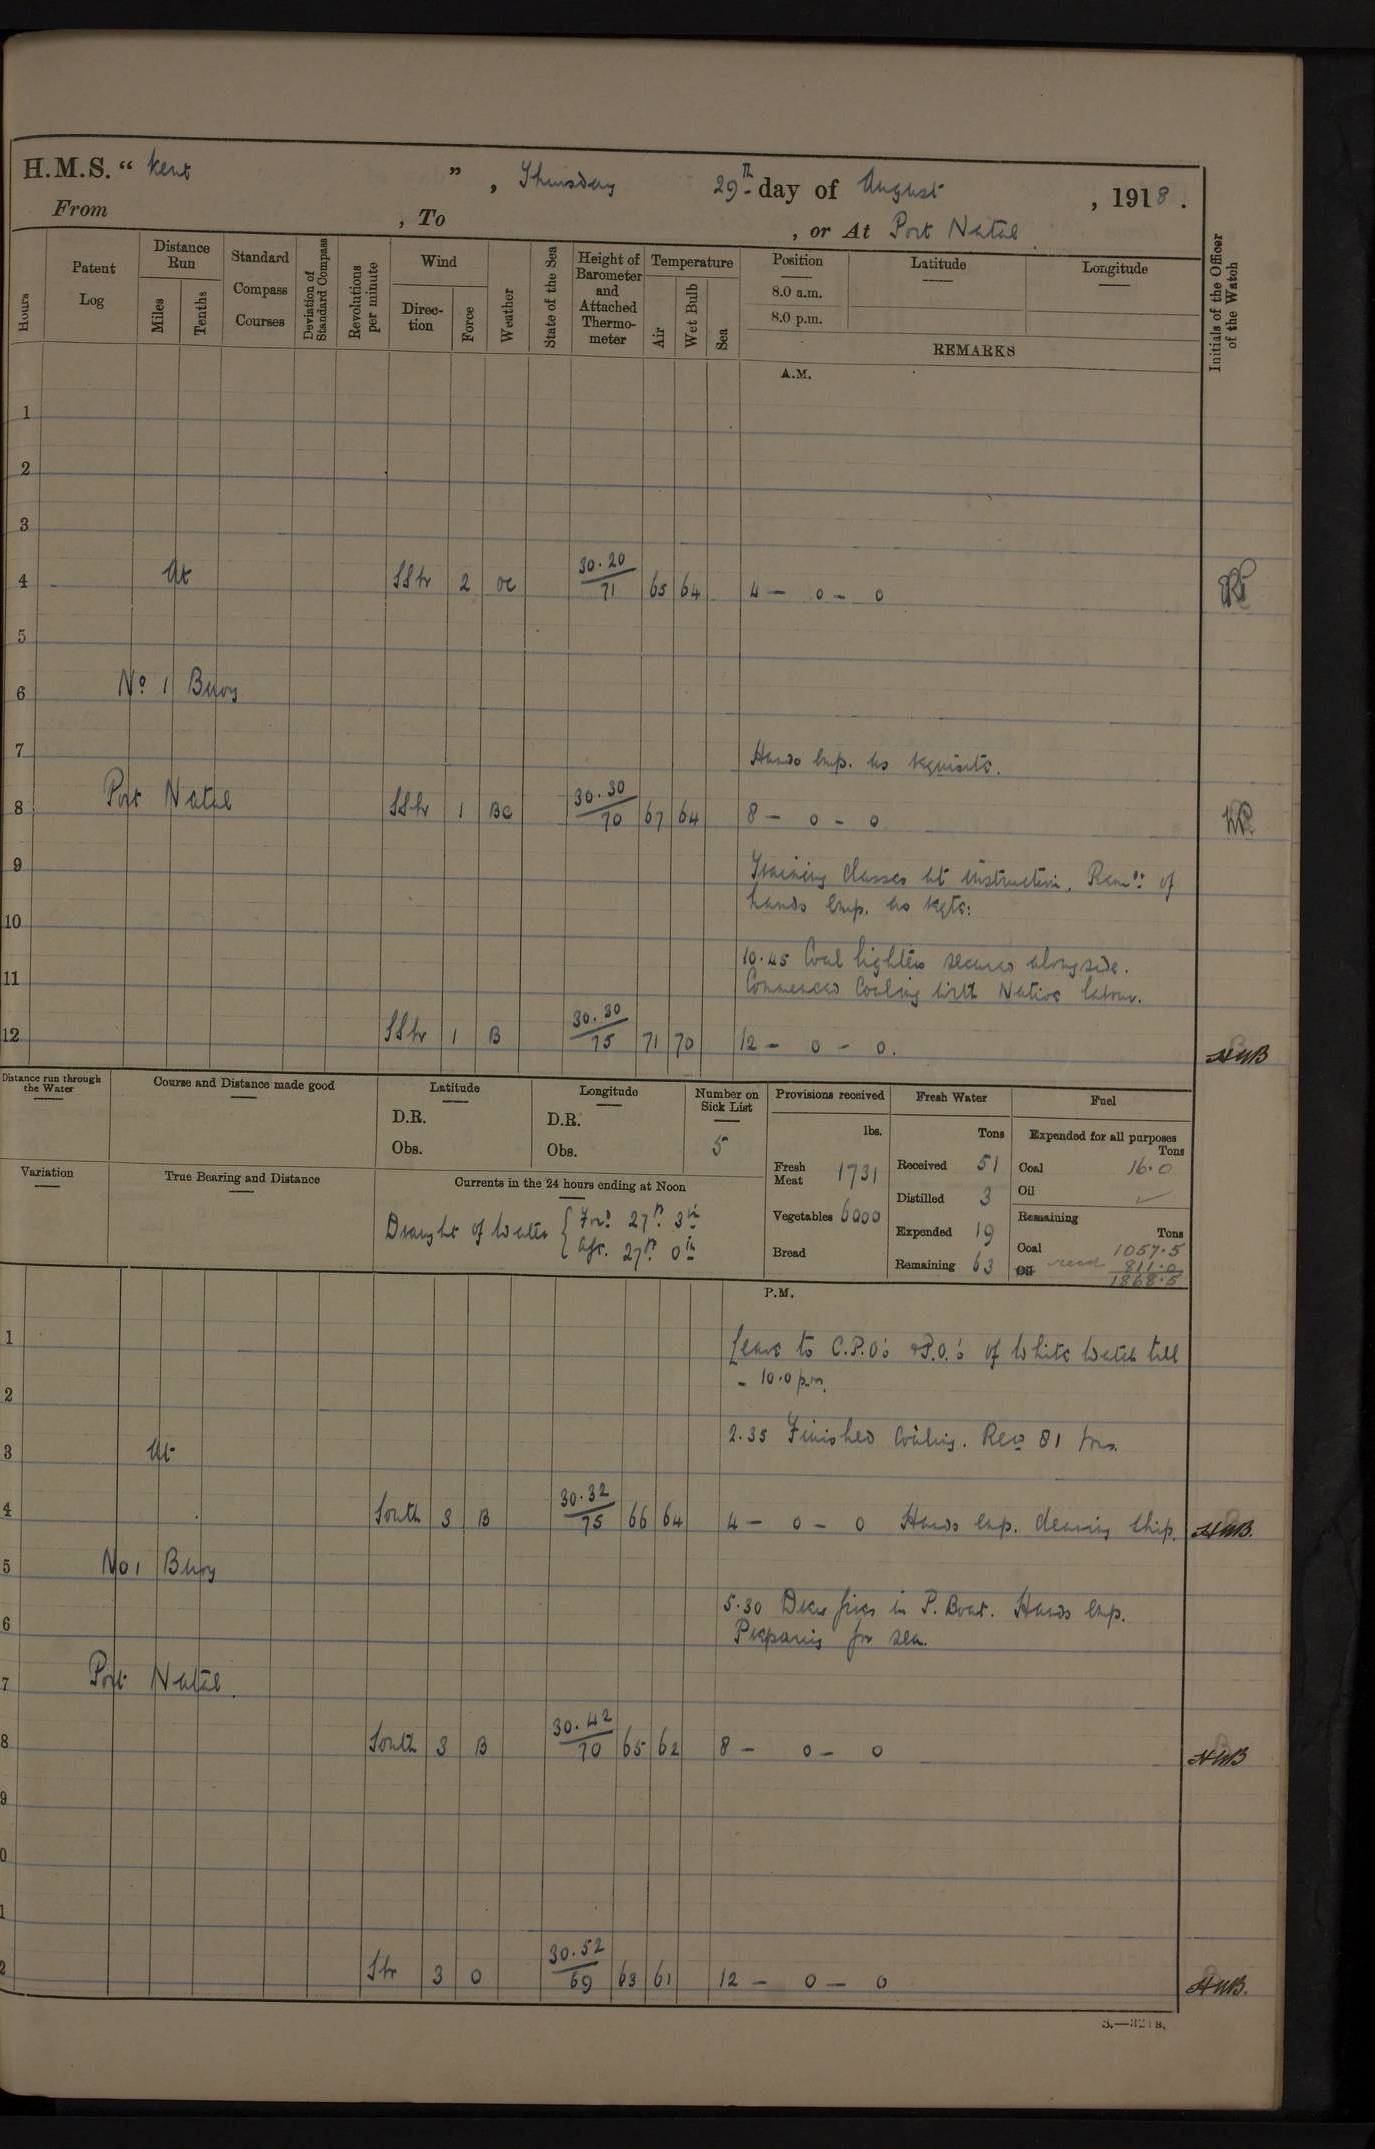 H.M.S. “ Kent ”, Thursday 29th day of August, 1918.
From , To , or At Port Natal
Hours
Patent Log
Distance Run
Miles
Tenths
Standard Compass Courses
Deviation of Standard Compass
Revolutions per minute
Wind
Direction
Force
Weather
State of the Sea
Height of Barometer and Attached Thermometer
Temperature
Air
Wet Bulb
Sea
Position
8.0 a.m.
8.0 p.m.
Latitude
Longitude
REMARKS
Initials of the Officer of the Watch
A.M.
1
2
3
4 At SSW 2 oc 30.20/71 65 64 4 – 0 – 0
5
6 No 1 Buoy
7 Hands emp. as requisite.
8 Port Natal SSW 1 BC 30.30/70 67 64 8 – 0 – 0
9 Training Classes at instruction. Remdr: of
hands emp. as reqte:
10
10.45 Coal lighters secured alongside.
11 Commenced Coaling with Native labour.
12 SSW 1 B 30.30/75 71 70 12 – 0 – 0. HWB
Distance run through the Water
Course and Distance made good
Latitude
D.R.
Obs.
Longitude
D.R.
Obs.
Number on Sick List
5
Provisions received
lbs.
Fresh Meat 1731
Vegetables 6000
Bread
Fresh Water
Tons
Received 51
Distilled 3
Expended 19
Remaining 63
Fuel
Expended for all purposes
Tons
Coal 16.0
Oil
Remaining
Tons
Coal 1057.5
Oil 811.0
1868.5
Variation
True Bearing and Distance
Currents in the 24 hours ending at Noon
Draught of Water { Ford 27ft 3in
Aft. 27ft 0in
P.M.
1 Leave to C.P.O's & P.O.'s of White Watch till
– 10.0 p.m.
2
2.35 Finished Coaling. Recd 81 tons.
3 At
4 South 3 B 30.32/75 66 64 4 – 0 – 0 Hands emp. cleaning ship. HWB.
5 No 1 Buoy
5.30 Drew fires in P. Boat. Hands emp.
6 Preparing for sea.
7 Port Natal.
8 South 3 B 30.42/70 65 62 8 – 0 – 0 HWB
9
0
1
2 SW 3 0 30.52/69 63 61 12 – 0 – 0 HWB.